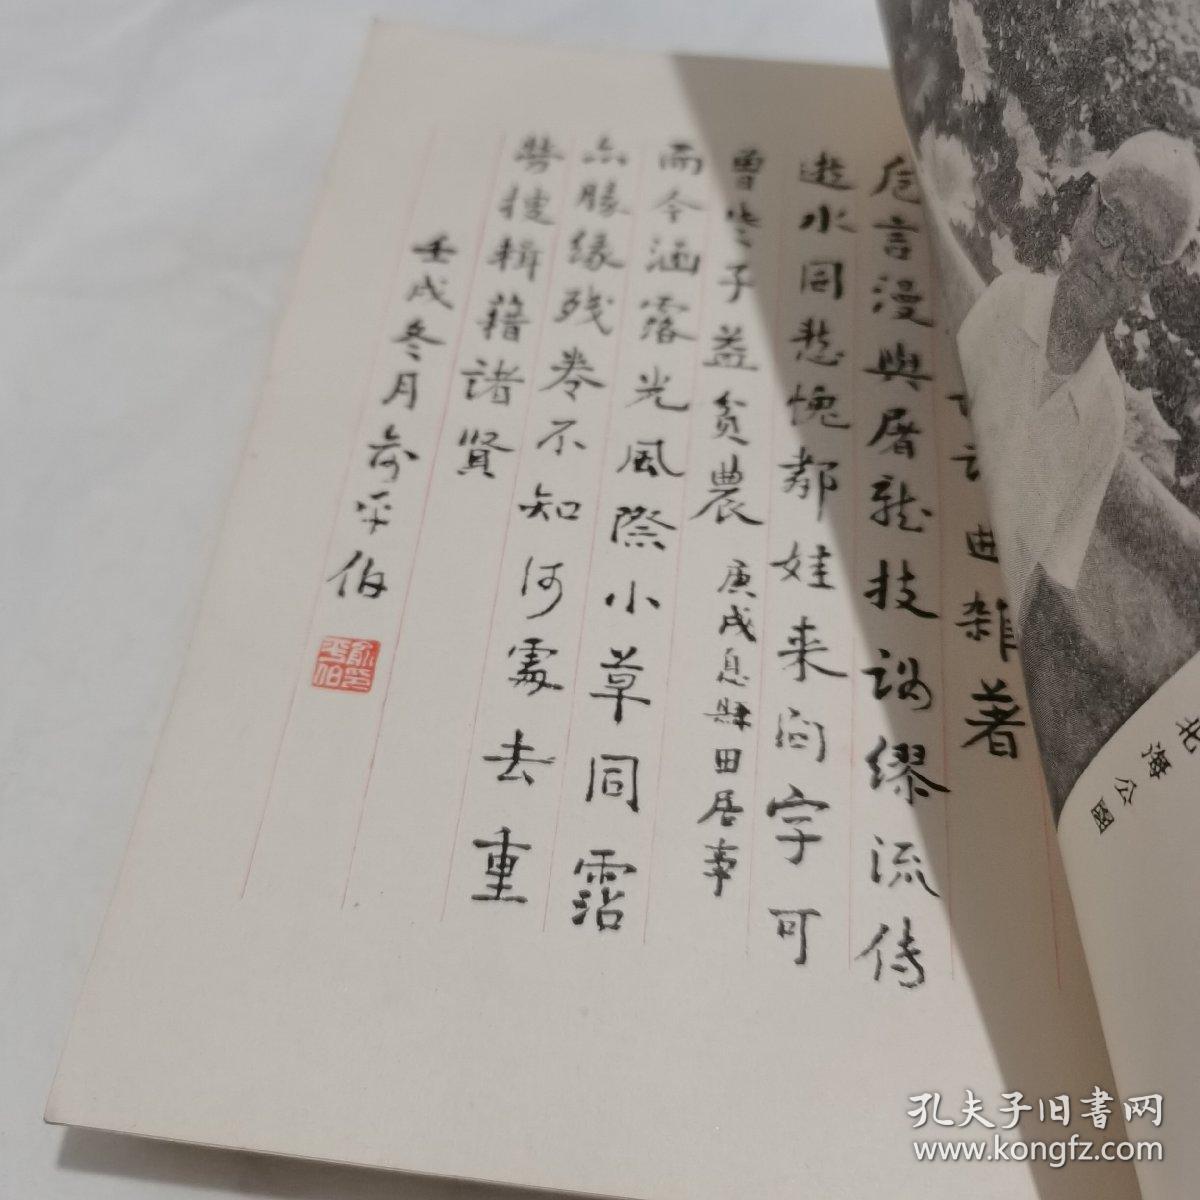 詞曲雜著
卮言漫與屠龍技繆流傳
逝水同愧鄰娃來問字可
曾子益貧農 庚戌息縣田居事
而今涵露光風際小草同霑
亦勝緣殘卷不知何處去重
勞搜輯藉諸賢
壬戌冬月俞平伯
俞印平伯
北海公園
孔夫子旧书网
www.kongfz.com